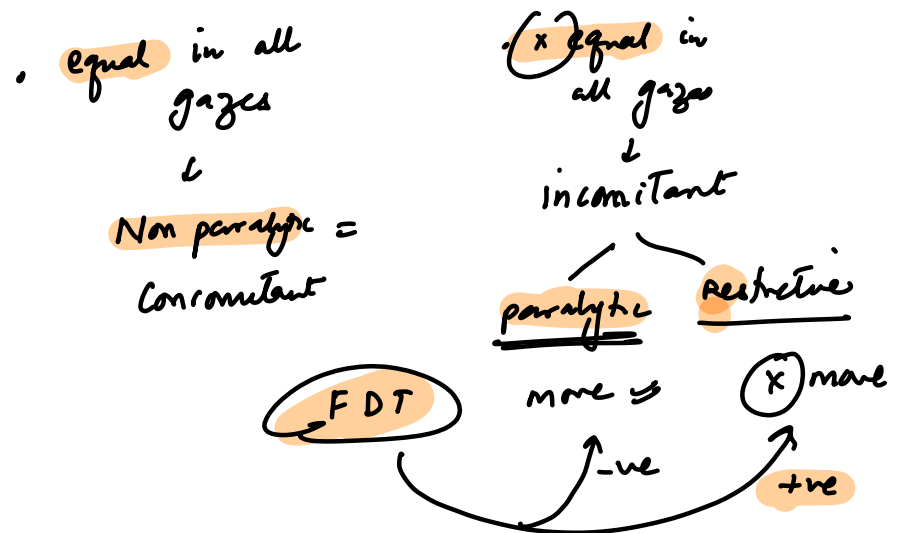 . equal in all
gazes
↓
Non paralytic =
Concomitant
. x equal in
all gazes
↓
incomitant
paralytic
Restrictive
FDT
move
x move
-ve
+ve